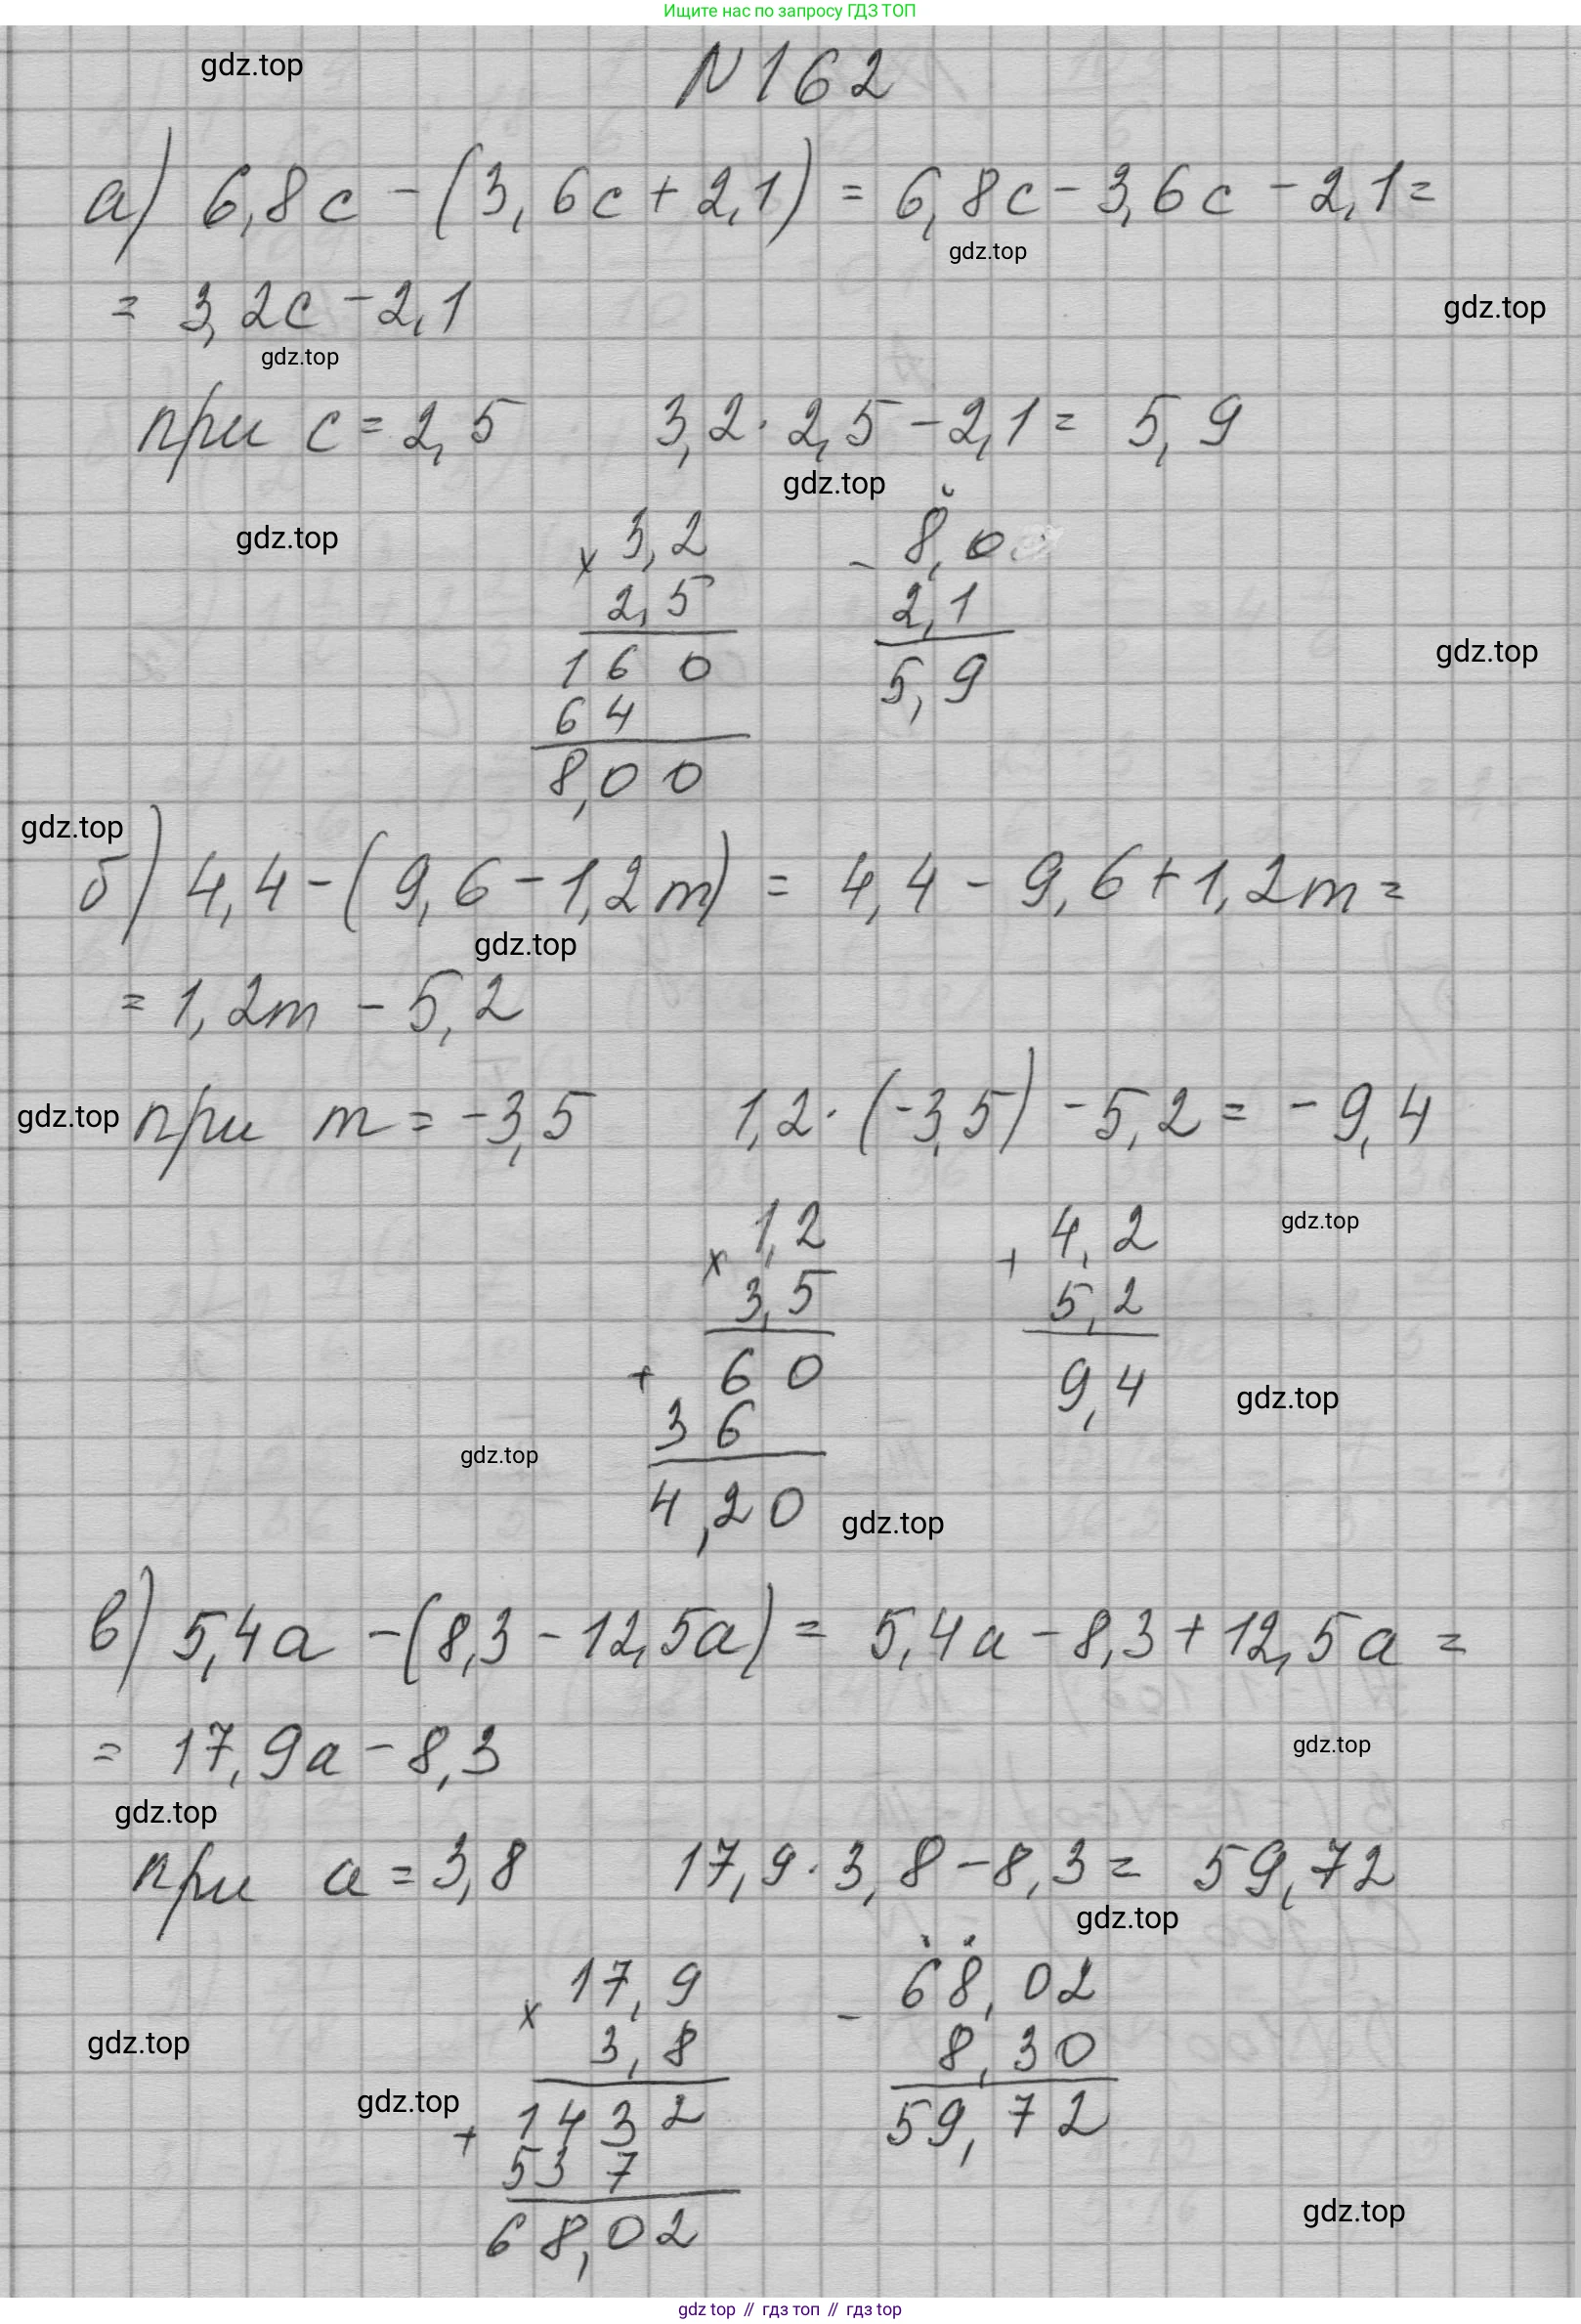 Ищите нас по запросу ГДЗ ТОП
gdz.top
N162
а) 6,8c - (3,6c + 2,1) = 6,8c - 3,6c - 2,1 =
gdz.top
= 3,2c - 2,1
gdz.top
gdz.top
при c = 2,5 3,2 · 2,5 - 2,1 = 5,9
gdz.top
gdz.top
x 3,2 - 8,0
2,5 2,1
gdz.top
160 5,9
64
8,00
gdz.top
б) 4,4 - (9,6 - 1,2m) = 4,4 - 9,6 + 1,2m =
gdz.top
= 1,2m - 5,2
gdz.top
при m = -3,5 1,2 · (-3,5) - 5,2 = -9,4
gdz.top
x 1,2 + 4,2
3,5 5,2
+ 60 9,4
gdz.top
36
gdz.top
4,20
gdz.top
в) 5,4a - (8,3 - 12,5a) = 5,4a - 8,3 + 12,5a =
= 17,9a - 8,3
gdz.top
gdz.top
при a = 3,8 17,9 · 3,8 - 8,3 = 59,72
gdz.top
x 17,9 - 68,02
3,8 8,30
gdz.top
gdz.top
+ 1432 59,72
537
68,02
gdz.top
gdz top // гдз топ // гдз top